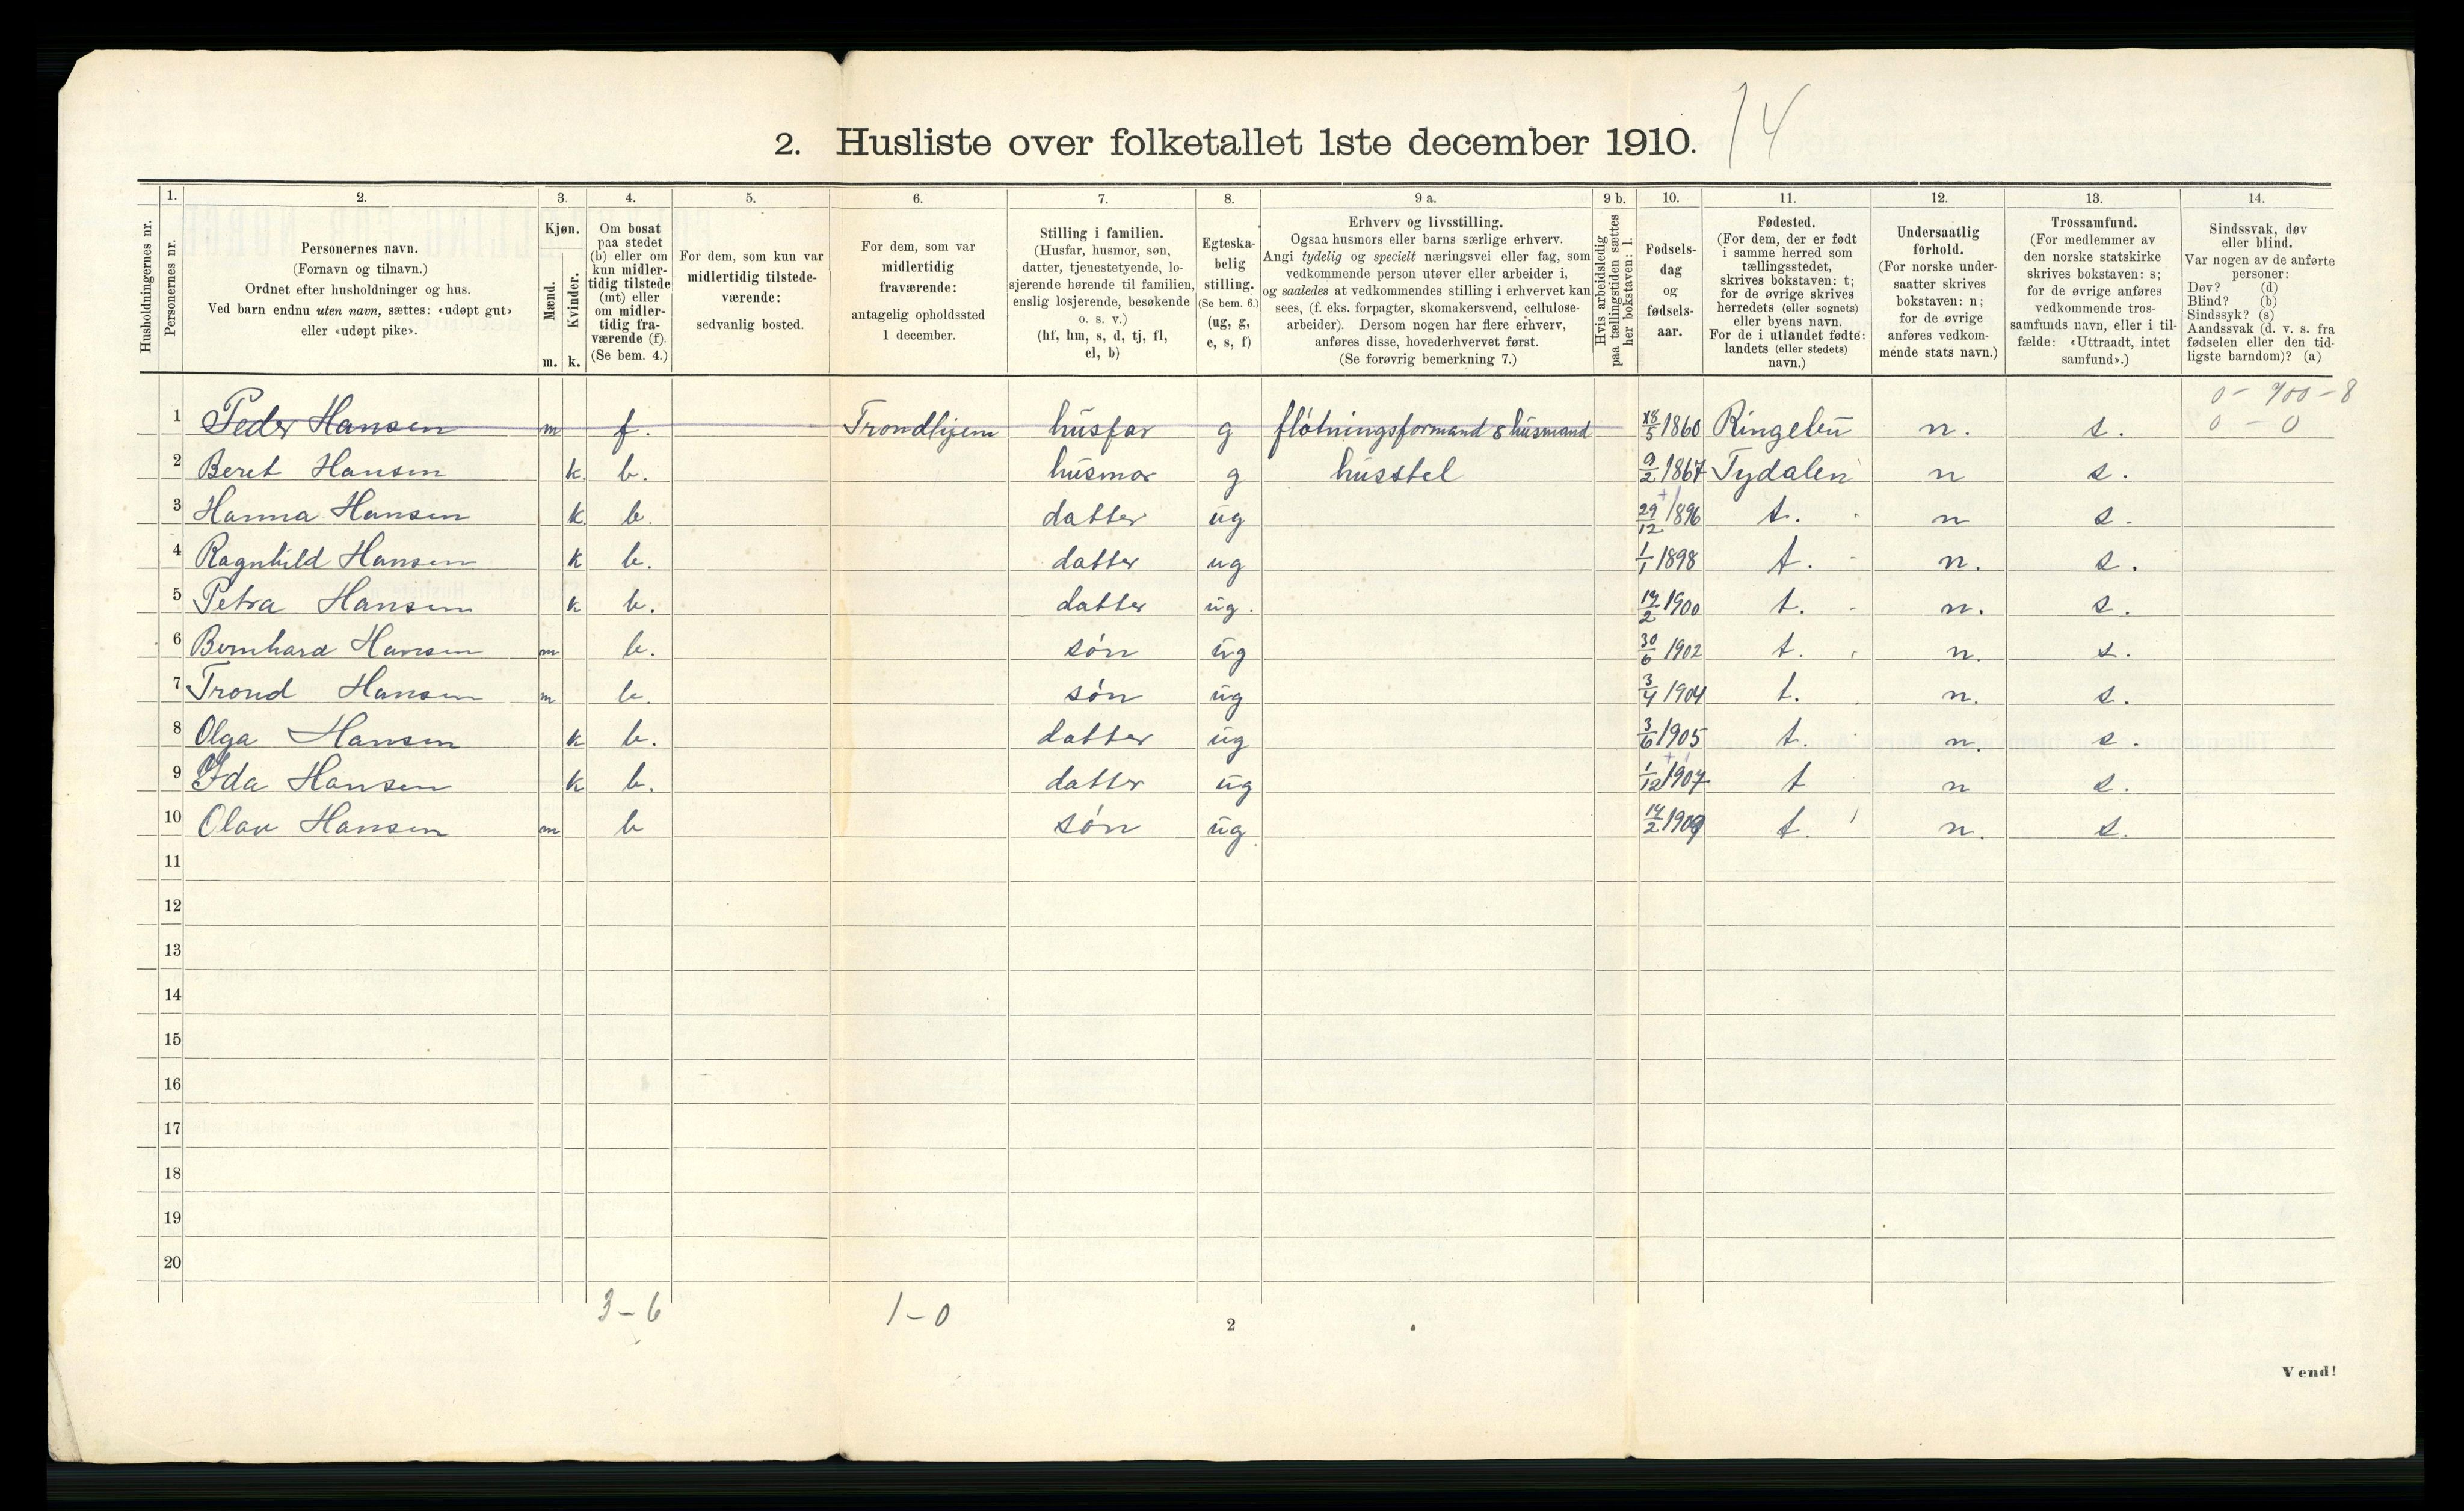 14
2. Husliste over folketallet 1ste december 1910.
Husholdningernes nr.
1. Personernes nr.
2. Personernes navn. (Fornavn og tilnavn.) Ordnet efter husholdninger og hus. Ved barn endnu uten navn, sættes: «udøpt gut» eller «udøpt pike».
3. Kjøn. Mænd. m. Kvinder. k.
4. Om bosat paa stedet (b) eller om kun midlertidig tilstede (mt) eller om midlertidig fraværende (f). (Se bem. 4.)
5. For dem, som kun var midlertidig tilstedeværende: sedvanlig bosted.
6. For dem, som var midlertidig fraværende: antagelig opholdssted 1 december.
7. Stilling i familien. (Husfar, husmor, søn, datter, tjenestetyende, losjerende hørende til familien, enslig losjerende, besøkende o. s. v.) (hf, hm, s, d, tj, fl, el, b)
8. Egteskabelig stilling. (Se bem. 6.) (ug, g, e, s, f)
9 a. Erhverv og livsstilling. Ogsaa husmors eller barns særlige erhverv. Angi tydelig og specielt næringsvei eller fag, som vedkommende person utøver eller arbeider i, og saaledes at vedkommendes stilling i erhvervet kan sees, (f. eks. forpagter, skomakersvend, cellulosearbeider). Dersom nogen har flere erhverv, anføres disse, hovederhvervet først. (Se forøvrig bemerkning 7.)
9 b. Hvis arbeidsledig paa tællingstiden sættes her bokstaven: l.
10. Fødselsdag og fødselsaar.
11. Fødested. (For dem, der er født i samme herred som tællingsstedet, skrives bokstaven: t; for de øvrige skrives herredets (eller sognets) eller byens navn. For de i utlandet fødte: landets (eller stedets) navn.)
12. Undersaatlig forhold. (For norske undersaatter skrives bokstaven: n; for de øvrige anføres vedkommende stats navn.)
13. Trossamfund. (For medlemmer av den norske statskirke skrives bokstaven: s; for de øvrige anføres vedkommende trossamfunds navn, eller i tilfælde: «Uttraadt, intet samfund».)
14. Sindssvak, døv eller blind. Var nogen av de anførte personer: Døv? (d) Blind? (b) Sindssyk? (s) Aandssvak (d. v. s. fra fødselen eller den tidligste barndom)? (a)
0 - 900 - 8
1 Peder Hansen m f. Trondhjem husfar g fløtningsformand & husmand 18/5 1860 Ringebu n. s. 0 - 0
2 Beret Hansen k. b. husmor g husstel 9/2 1867 Tydalen n s.
3 Hanna Hansen k b. datter ug 29/12 1896 t. n s.
4 Ragnhild Hansen k b. datter ug 1/1 1898 t. n. s.
5 Petra Hansen k b. datter ug. 14/2 1900 t. n. s.
6 Bernhard Hansen m b. søn ug 30/6 1902 t. n. s.
7 Trond Hansen m b. søn ug 3/4 1904 t. n. s.
8 Olga Hansen k b. datter ug 3/6 1905 t. n. s.
9 Ida Hansen k b. datter ug 1/12 1907 t n s.
10 Olav Hansen m b søn ug. 14/2 1909 t. n. s.
11
12
13
14
15
16
17
18
19
20
3 - 6 1 - 0
2
Vend!